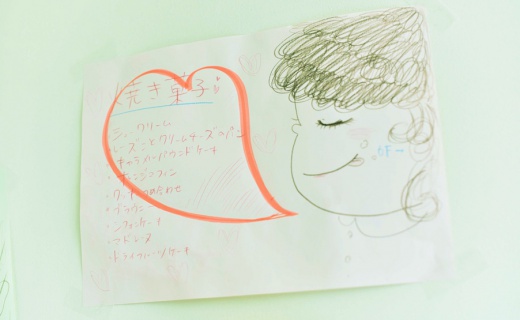 焼き菓子
シュークリーム
レーズンとクリームチーズのパン
キャラメルパウンドケーキ
・オレンジマフィン
・クッキー詰め合わせ
・ブラウニー
・シフォンケーキ
・マドレーヌ
・ドライフルーツケーキ